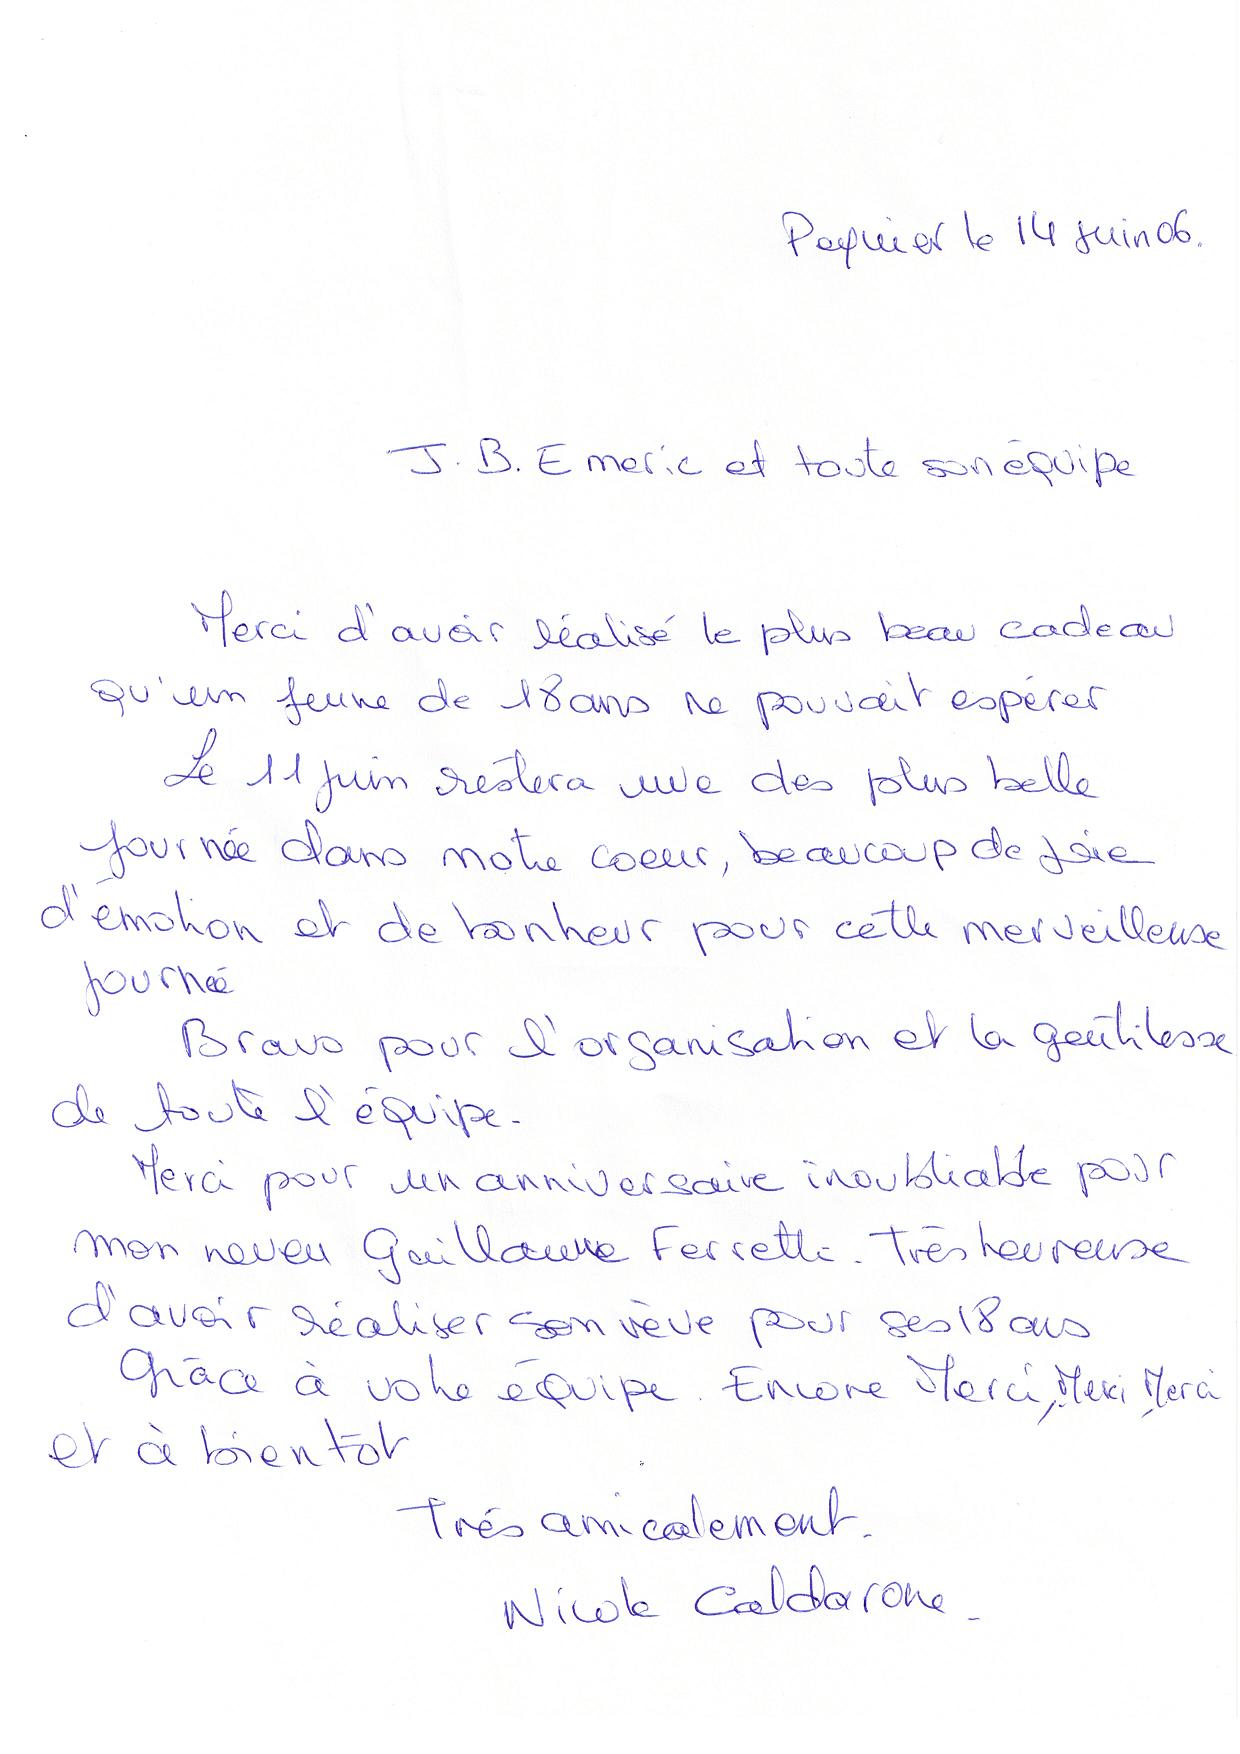 Paquier le 14 juin 06.
J. B. Emeric et toute son équipe
Merci d'avoir réalisé le plus beau cadeau
qu'un jeune de 18 ans ne pouvait espérer
Le 11 juin restera une des plus belle
journée dans notre coeur, beaucoup de joie
d'émotion et de bonheur pour cette merveilleuse
journée
Bravo pour l'organisation et la gentilesse
de toute l'équipe.
Merci pour un anniversaire inoubliable pour
mon neveu Guillaume Ferretti. Très heureuse
d'avoir réaliser son rêve pour ses 18 ans
Grâce à votre équipe. Encore Merci, Merci, Merci
et à bientôt
Trés amicalement.
Nicole Caldarone.